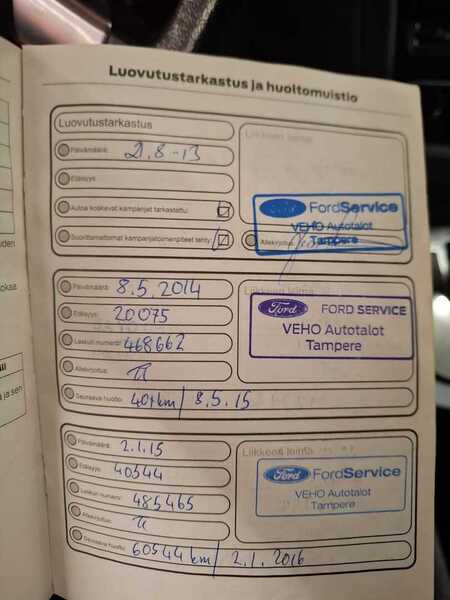 Luovutustarkastus ja huoltomuistio
Luovutustarkastus
Liikkeen leima
Päivämäärä: 2.8-13
Etäisyys:
Ford FordService
VEHO Autotalot
Tampere
Autoa koskevat kampanjat tarkastettu:
Suorittamattomat kampanjatoimenpiteet tehty:
Allekirjoitus:
Päivämäärä: 8.5.2014
Liikkeen leima
Etäisyys: 20075
Ford FORD SERVICE
VEHO Autotalot
Tampere
Laskun numero: 468662
Allekirjoitus:
Seuraava huolto: 40tkm/ 8.5.15
Päivämäärä: 2.1.15
Liikkeen leima
Etäisyys: 40544
Ford FordService
VEHO Autotalot
Tampere
Laskun numero: 485465
Allekirjoitus:
Seuraava huolto: 60544 km/ 2.1.2016
uden
okaa
ja sen